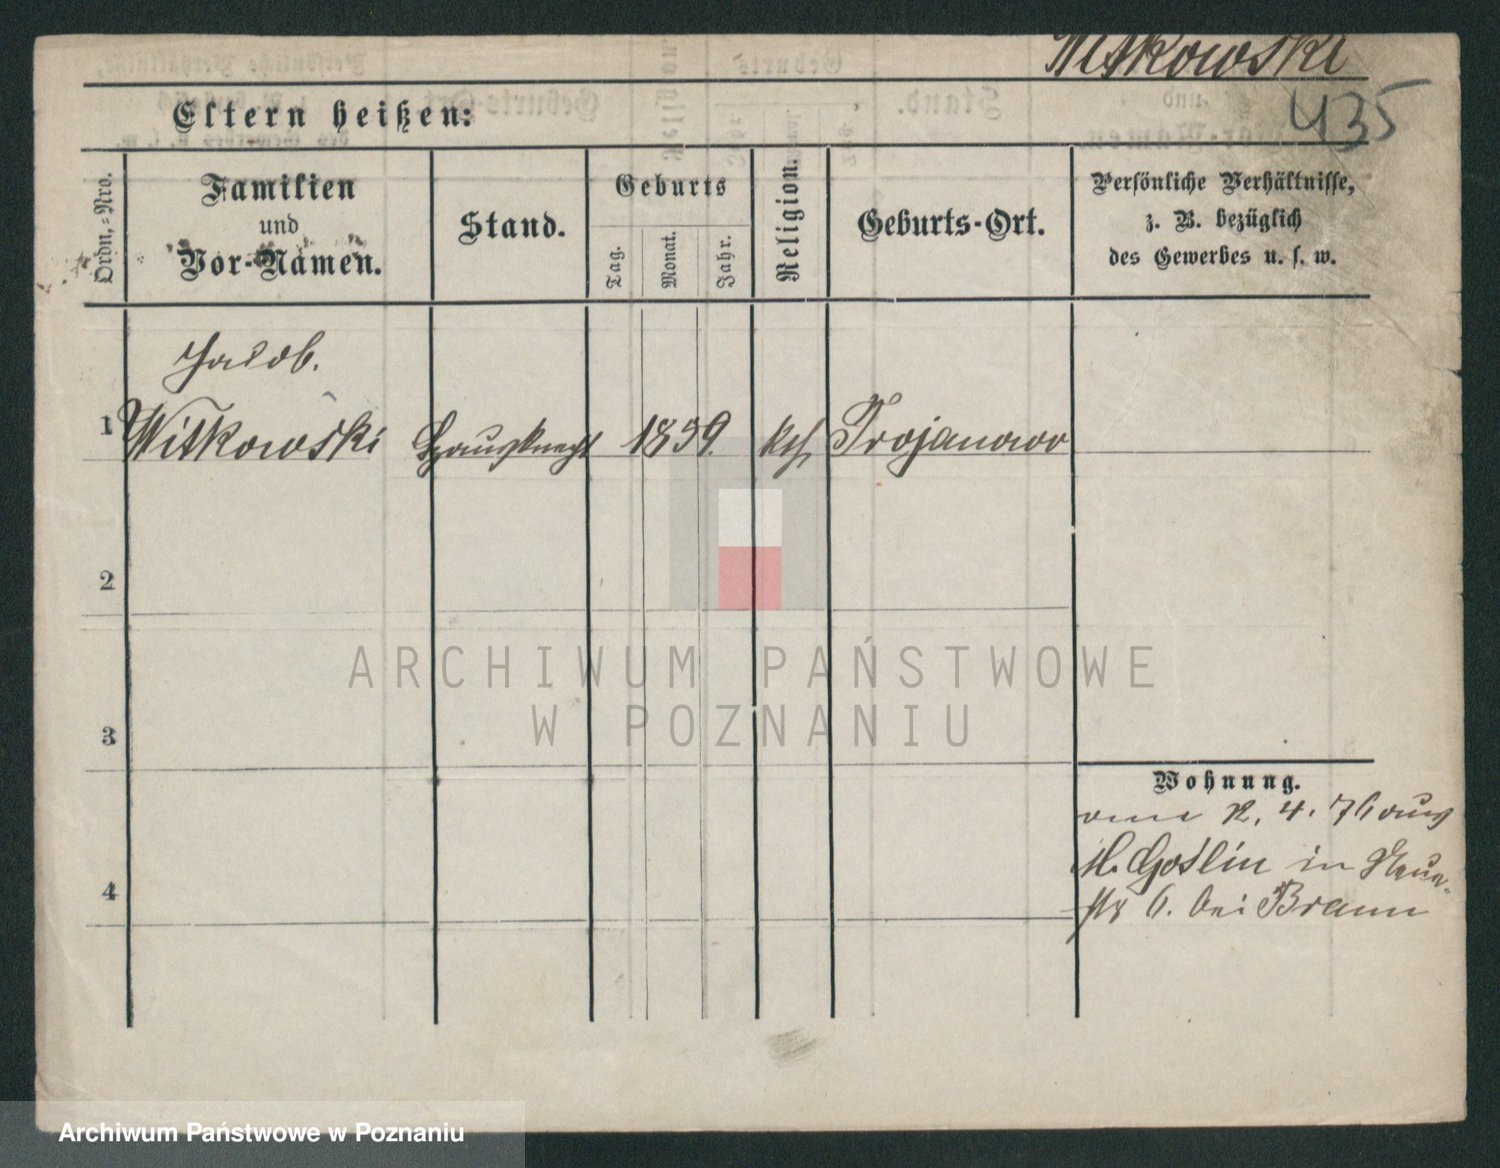 Witkowski
435
Eltern heißen:
Ordn.-Nro.
Familien
und
Vor-Namen.
Stand.
Geburts
Tag.
Monat.
Jahr.
Religion.
Geburts-Ort.
Persönliche Verhältnisse,
z. B. bezüglich
des Gewerbes u. s. w.
Jakob.
1 Witkowski Hausknecht 1859. kth Trojanowo
2
3
4
Wohnung.
12. 4. 76 aus
M. Goslin in Neue-
str 6. bei Braun
ARCHIWUM PAŃSTWOWE
W POZNANIU
Archiwum Państwowe w Poznaniu